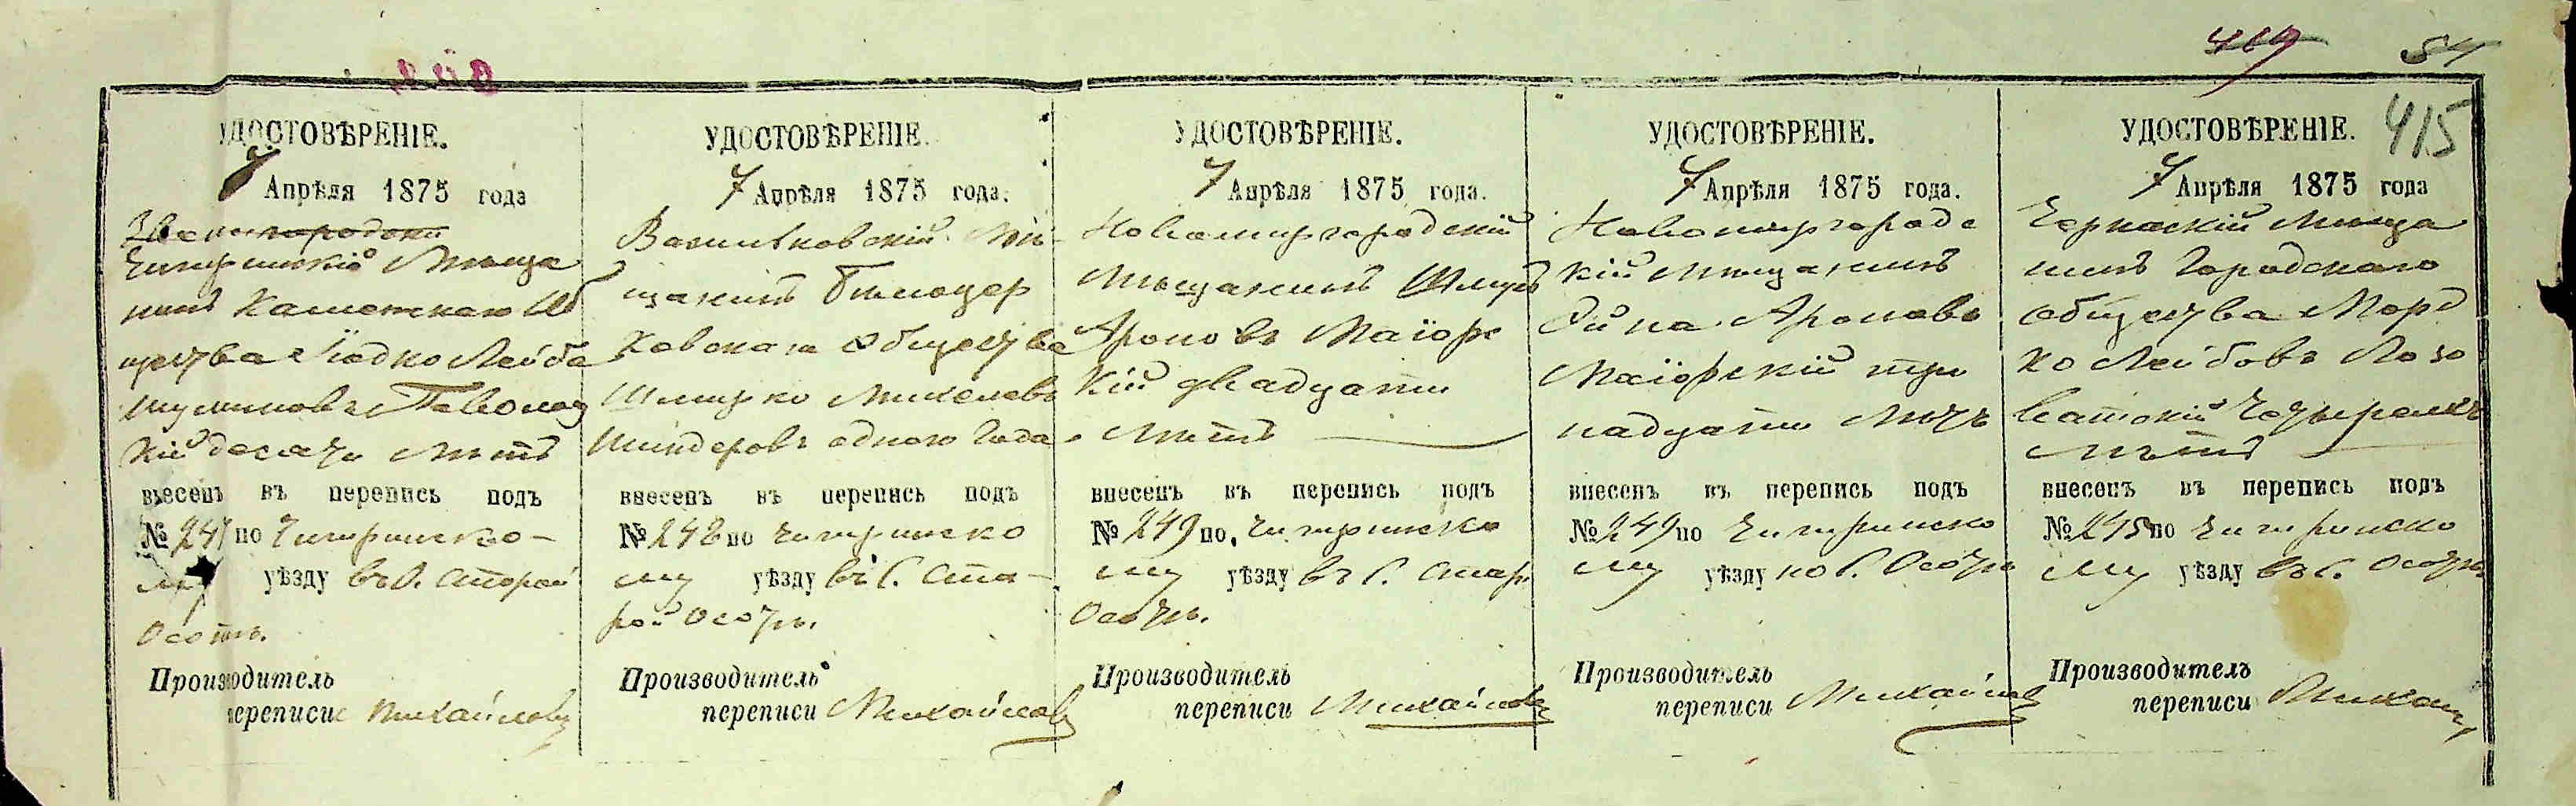 419 54
415
УДОСТОВѢРЕНІЕ.
7 Апрѣля 1875 года
Звенигородски
Чигиринскій Мѣща
нинъ Каменскаго Об
щества Іодко Лейба
Паволоц
кій десяти Лѣтъ
внесенъ въ перепись подъ
№ 241 по Чигиринско-
му уѣзду въ С. Старой
Осотѣ.
Производитель
переписи Михайловъ
УДОСТОВѢРЕНІЕ.
7 Апрѣля 1875 года.
Васильковскій Мѣ-
щанинъ Бѣлоцер
ковскаго Общества
Шмирко Михелевъ
Шиндеровъ одного Года
внесенъ въ перепись подъ
№ 242 по Чигиринско
му уѣзду въ С. Ста-
рой Осотѣ.
Производитель
переписи Михайловъ
УДОСТОВѢРЕНІЕ.
7 Апрѣля 1875 года.
Новомиргородскій
Мѣщанинъ Шмуль
Ароновъ Маіорс
кій двадцати
Лѣтъ
внесенъ въ перепись подъ
№ 243 по Чигиринско
му уѣзду въ С. Стар.
Осотѣ.
Производитель
переписи Михайловъ
УДОСТОВѢРЕНІЕ.
7 Апрѣля 1875 года.
Новомиргородс
кій Мѣщанинъ
Ароновъ
Маіорскій три
надцати Лѣтъ
внесенъ въ перепись подъ
№ 244 по Чигиринско
му уѣзду по С. Осотѣ
Производитель
переписи Михайловъ
УДОСТОВѢРЕНІЕ.
7 Апрѣля 1875 года
Черкаскій Мѣща
нинъ Городскаго
Общества Морд
ко Лейбовъ Лозо
ватскій Четырехъ
Лѣтъ
внесенъ въ перепись подъ
№ 245 по Чигиринско
му уѣзду въ С. Осотѣ
Производитель
переписи Михай